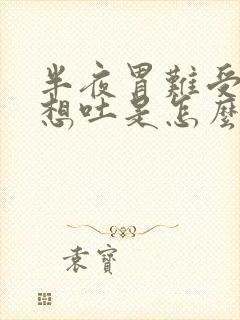 半夜胃難受
想吐是怎麼
袁寶